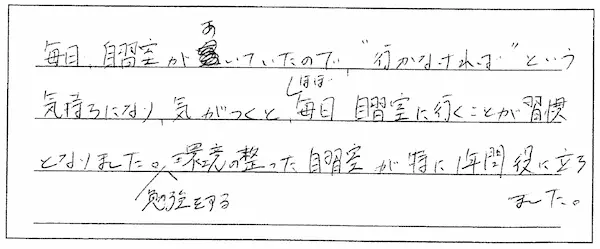 毎日、自習室があいていたので“行かなければ”という
気持ちになり、気がつくと、ほぼ毎日 自習室に行くことが習慣
となりました。勉強をする環境の整った自習室が特に1年間役に立ち
ました。